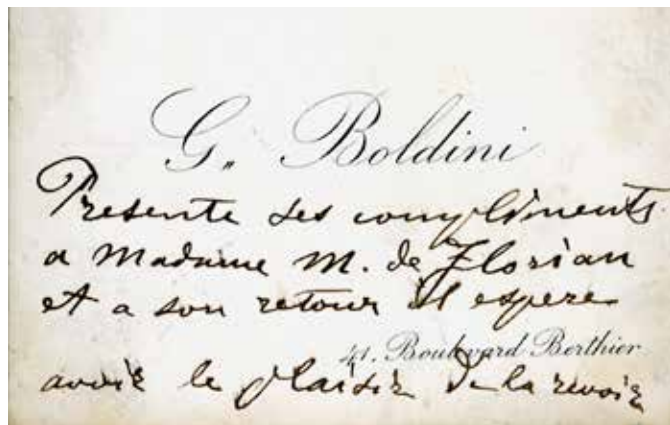 G. Boldini
Presente ses compliments
a Madame M. de Florian
et a son retour il espere
41. Boulevard Berthier
avoir le plaisir de la revoir